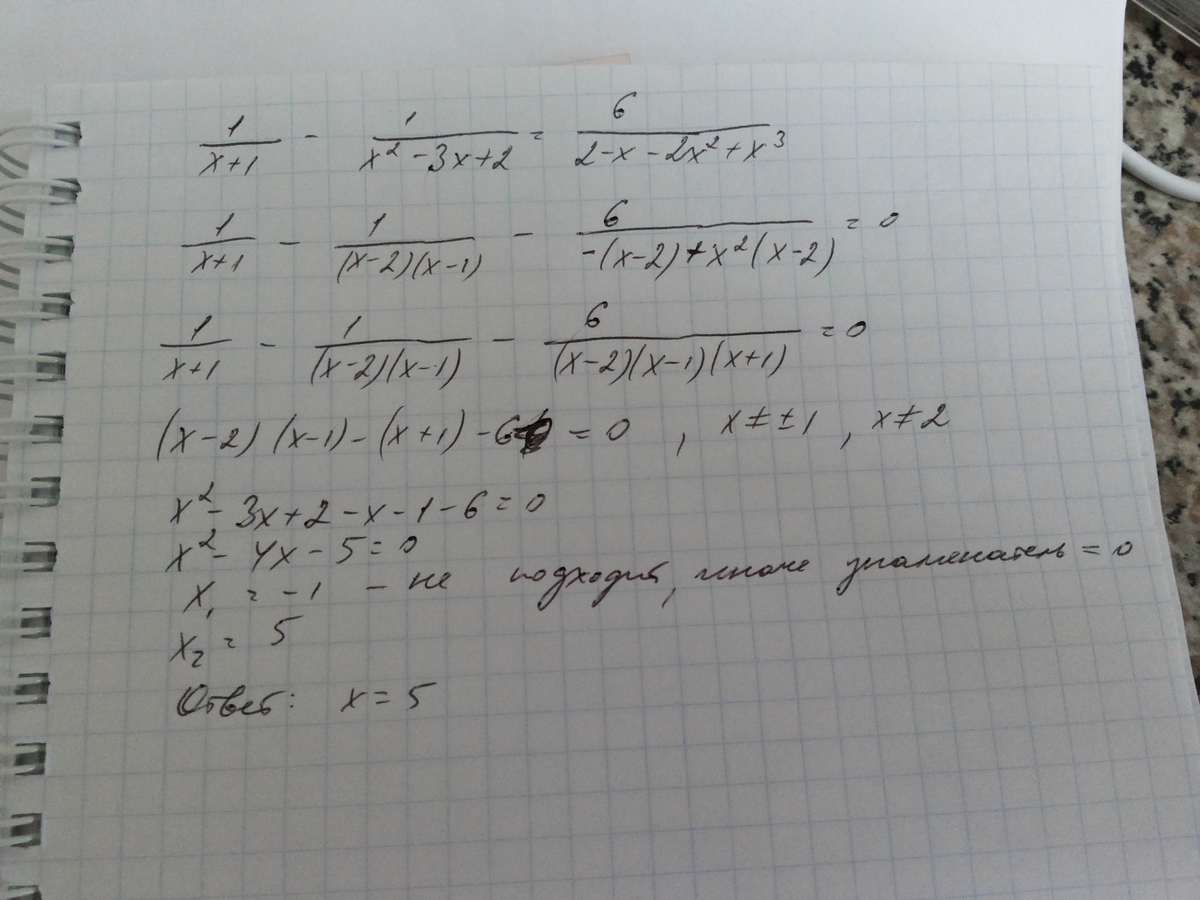 1/(x+1) - 1/(x² - 3x + 2) = 6/(2 - x - 2x² + x³)
1/(x+1) - 1/((x-2)(x-1)) - 6/(-(x-2) + x²(x-2)) = 0
1/(x+1) - 1/((x-2)(x-1)) - 6/((x-2)(x-1)(x+1)) = 0
(x-2)(x-1) - (x+1) - 6 = 0 , x ≠ ±1 , x ≠ 2
x² - 3x + 2 - x - 1 - 6 = 0
x² - 4x - 5 = 0
x₁ = -1 - не подходит, иначе знаменатель = 0
x₂ = 5
Ответ: x = 5